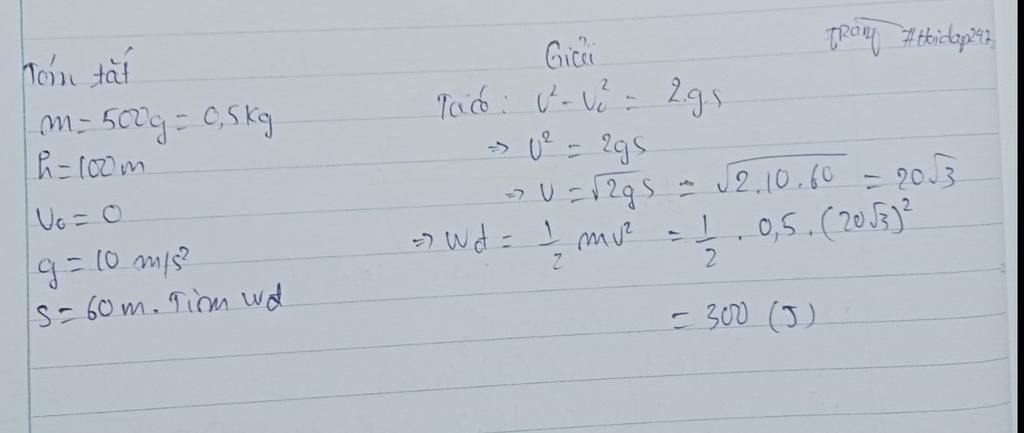 Tóm tắt
m = 500g = 0,5kg
h = 100m
V₀ = 0
g = 10 m/s²
s = 60m. Tìm Wđ
Giải
Ta có: v² - v₀² = 2.g.s
=> v² = 2gs
=> v = √2gs = √2.10.60 = 20√3
=> Wđ = 1/2 mv² = 1/2 . 0,5 . (20√3)²
= 300 (J)
#hoidap247